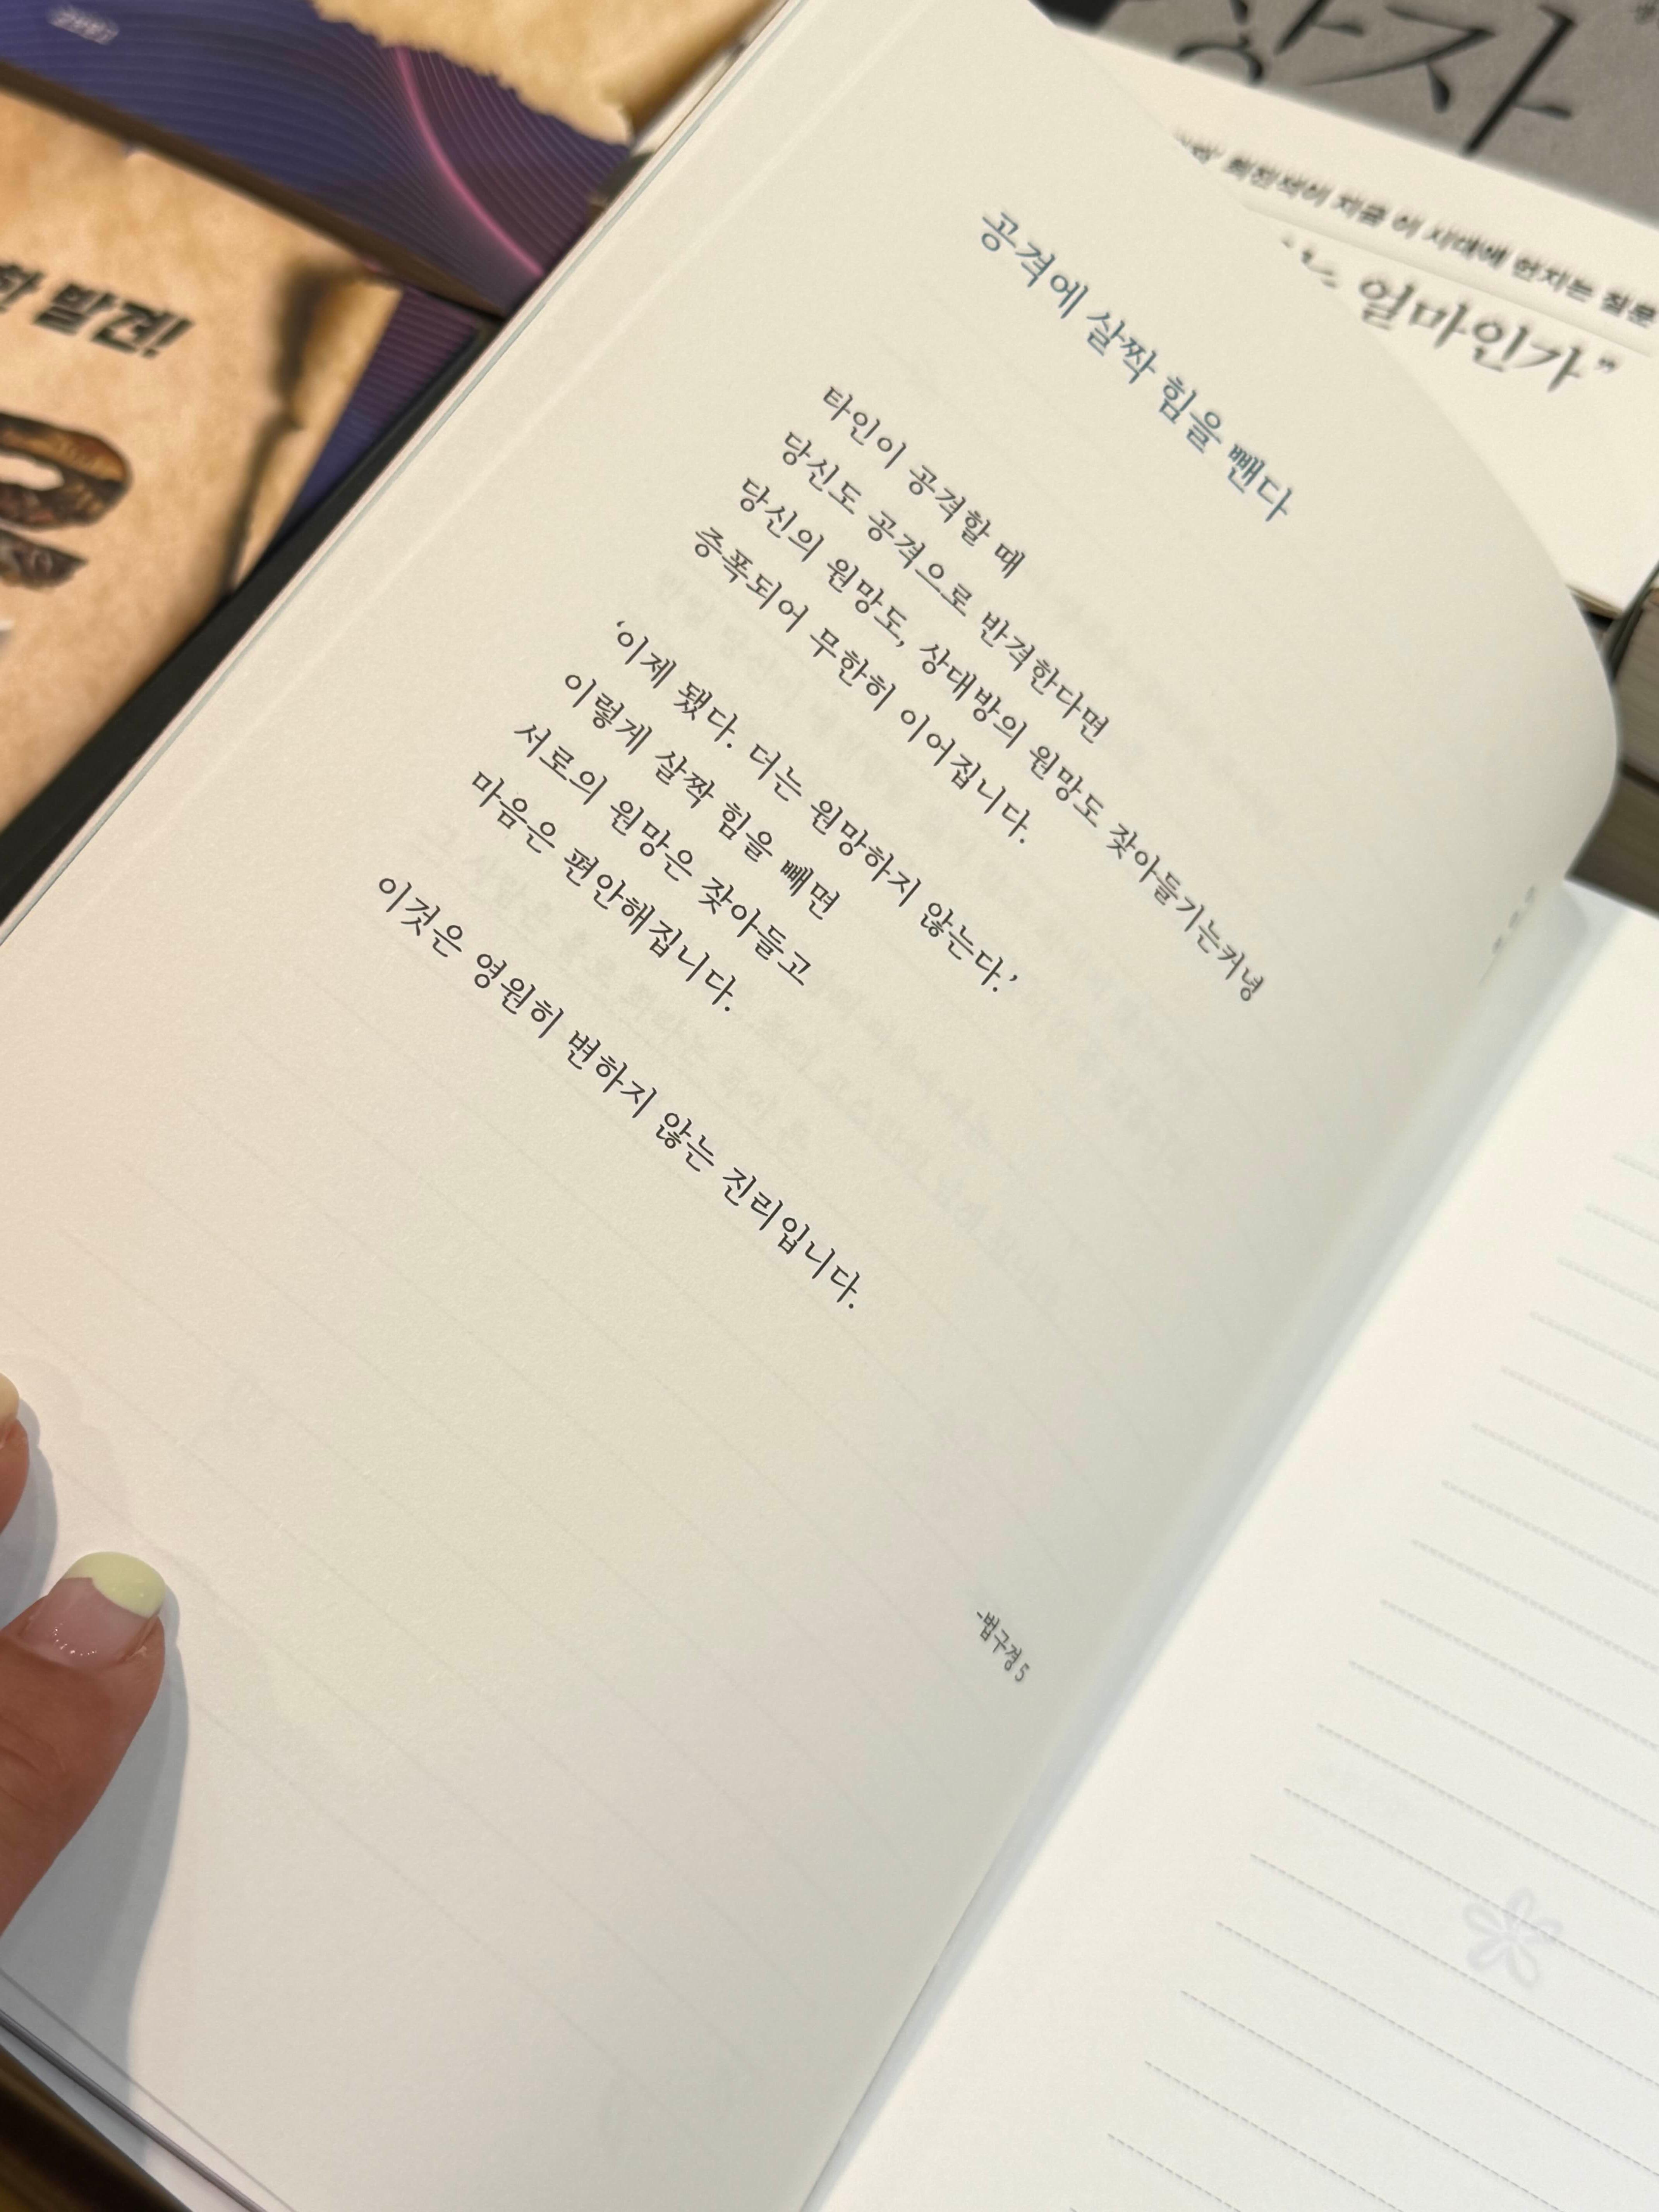 공격에 살짝 힘을 뺀다
타인이 공격할 때
당신도 공격으로 반격한다면
당신의 원망도, 상대방의 원망도 잦아들기는커녕
증폭되어 무한히 이어집니다.
‘이제 됐다. 더는 원망하지 않는다.’
이렇게 살짝 힘을 빼면
서로의 원망은 잦아들고
마음은 편안해집니다.
이것은 영원히 변하지 않는 진리입니다.
-법구경 5
발견!
이 시대에 던지는 질문
얼마인가”